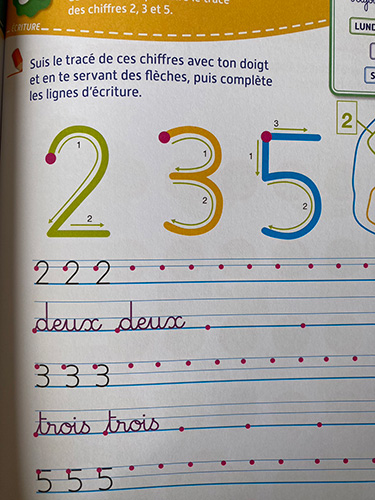 le tracé
des chiffres 2, 3 et 5.
ÉCRITURE
LUND
Suis le tracé de ces chiffres avec ton doigt
et en te servant des flèches, puis complète
les lignes d'écriture.
S
2
2 1 2
3 1 2
5 3 1 2
2 2 2
deux deux
3 3 3
trois trois
5 5 5